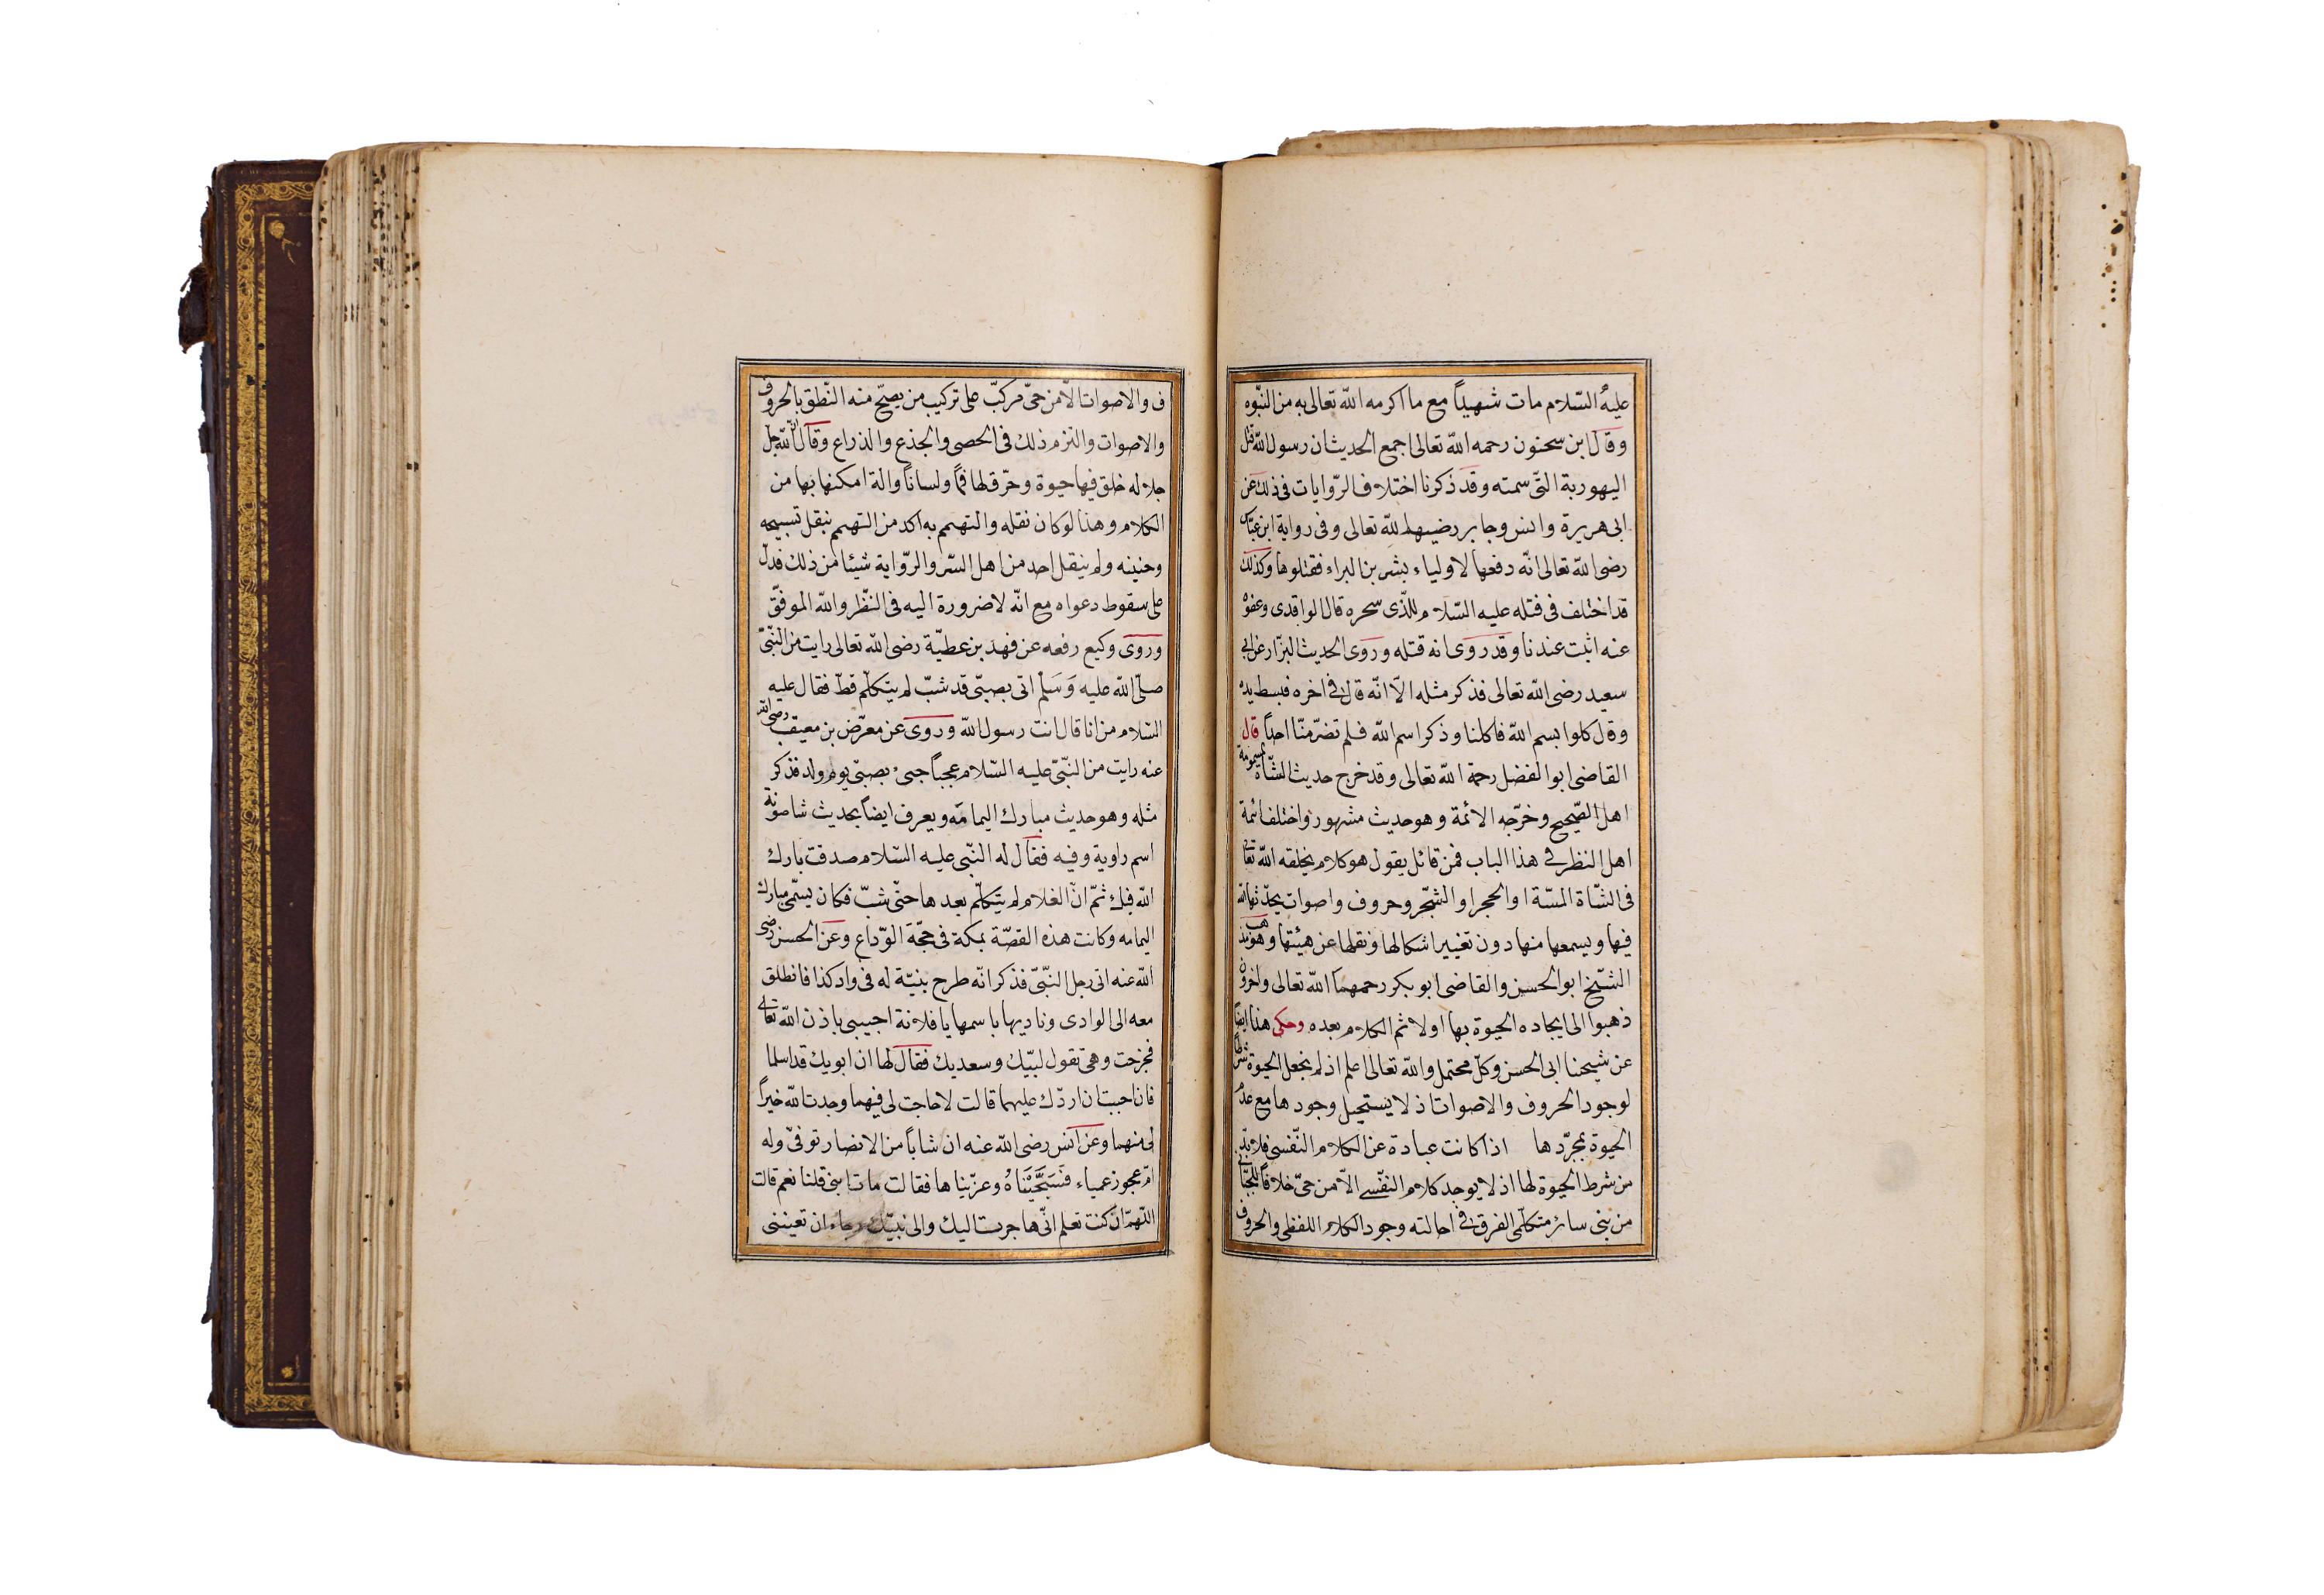 عليه السّلام مات شهيداً مع ما اكرمه الله تعالى به من النبّوه
وقال ابن سحنون رحمه الله تعالى اجمع الحديث ان رسول الله قتل
اليهورية التّى سمته وقد ذكرنا اختلاف الرّوايات فى ذلك عن
ابى هريرة وانس وجابر رضيهما الله تعالى وفى رواية ابن عبّاس
رضى الله تعالى انّه دفعها لاولياء بشر بن البراء فقتلوها وكذلك
قد اختلف فى قتله عليه السّلام للّذى سحره قال الواقدى وعفوه
عنه اثبت عندنا وقد روى انه قتله وروى الحديث البزّار عن ابى
سعيد رضى الله تعالى فذكر مثله الاّ انّه قال فى اخره فبسط يده
وقال كلوا بسم الله فاكلنا وذكر اسم الله فلم تضرّ منّا احداً قال
القاضى ابو الفضل رحمة الله تعالى وقد خرج حديث الشّاة المسمومة
اهل الصّحيح وخرّجه الائمة وهو حديث مشهور واختلف ائمة
اهل النظر فى هذا الباب فمن قائل يقول هو كلام يخلقه الله تعالى
فى الشّاة الميّتة او الحجر او الشّجر وحروف واصوات يحدّثها الله
فيها ويسمعها منها دون تغيير اشكالها ونقلها عن هيئتها وهو مذهب
الشّيخ ابو الحسن والقاضى ابو بكر رحمهما الله تعالى واخرون
ذهبوا الى ايجاده الحيوة بها اولا ثم الكلام بعده وحكى هذا ايضاً
عن شيخنا ابى الحسن وكلّ محتمل والله تعالى اعلم اذ لم يجعل الحيوة شرطا
لوجود الحروف والاصوات اذ لا يستحيل وجودها مع عدم
الحيوة بمجرّدها اذا كانت عبادة عن الكلام النّفسى فلا بدّ
من شرط الحيوة لها اذ لا يوجد كلام النفّس الاّ من حىّ خلافاً للجبّائى
من بنى سائر متكلّمى الفرق فى احالته وجود الكلام اللفظى والحروف
ف والاصوات الاّ من حىّ مركبّ على تركيب من يصحّ منه النّطق بالحروف
والاصوات والتزم ذلك فى الحصى والجذع والذراع وقال انّ الله جلّ
جلاله خلق فيها حيوة وخرّق لها فماً ولساناً والة امكنها بها من
الكلام وهذا لو كان نقله والتهمم به اكد من التهمم بنقل تسبيحه
وحنينه ولم ينقل احد من اهل السّر والرّواية شيئا من ذلك فدلّ
على سقوط دعواه مع انّه لا ضرورة اليه فى النّظر والله الموفّق
وروى وكيع رفعه عن فهد بن عطيّة رضى الله تعالى رايت من النّبىّ
صلّى الله عليه وَسَلّم اتى بصبىّ قد شبّ لم يتكلّم قطّ فقال عليه
السّلام من انا قال انت رسول الله وروى عن معرّض بن معيقب رضى الله
عنه رايت من النّبىّ عليه السّلام عجباً جىء بصبىّ يوم ولد فذكر
مثله وهو حديث مبارك اليمامّه ويعرف ايضاً بحديث شاصونة
اسم راوية وفيه فقال له النّبى عليه السّلام صدقت بارك
الله فيك ثمّ انّ الغلام لم يتكلّم بعدها حتّى شبّ فكان يسمّى مبارك
اليمامه وكانت هذه القصّة بمكة فى حجّة الوّداع وعن الحسن رضى
الله عنه اتى رجل النّبىّ فذكر انّه طرح بنيّة له فى واد كذا فانطلق
معه الى الوادى وناديها باسمها يا فلانة اجيبى باذن الله تعالى
فخرجت وهى تقول لبّيك وسعديك فقال لها ان ابويك قد اسلما
فان احببت ان اردّك عليهما قالت لا حاجت لى فيهما وجدت الله خيراً
لى منهما وعن انس رضى الله عنه ان شاباً من الانصار توفىّ وله
امّ عجوز عمياء فَسَجَّيْنَاهُ وعزّيناها فقالت مات ابنى قلنا نعم قالت
اللّهمّ ان كنت تعلم انّى هاجرت اليك والى نبيّك رجاء ان تعيننى